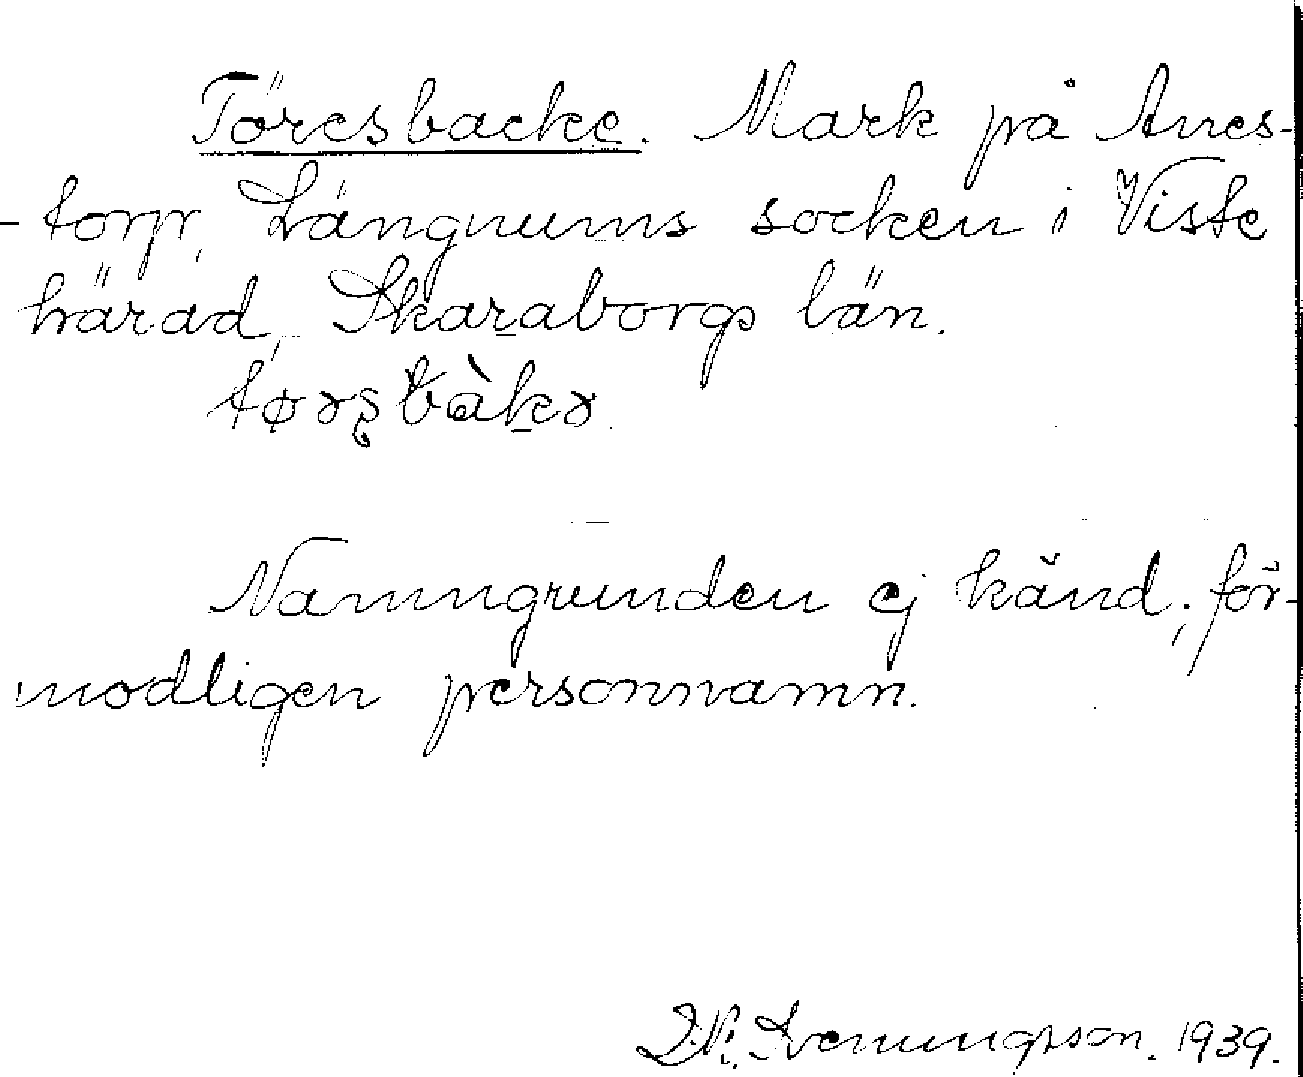 Töresbacke. Mark på Anes-
-torp, Längnums socken i Viste
härad, Skaraborgs län.
Namngrunden ej känd; för-
modligen personnamn.
1939.